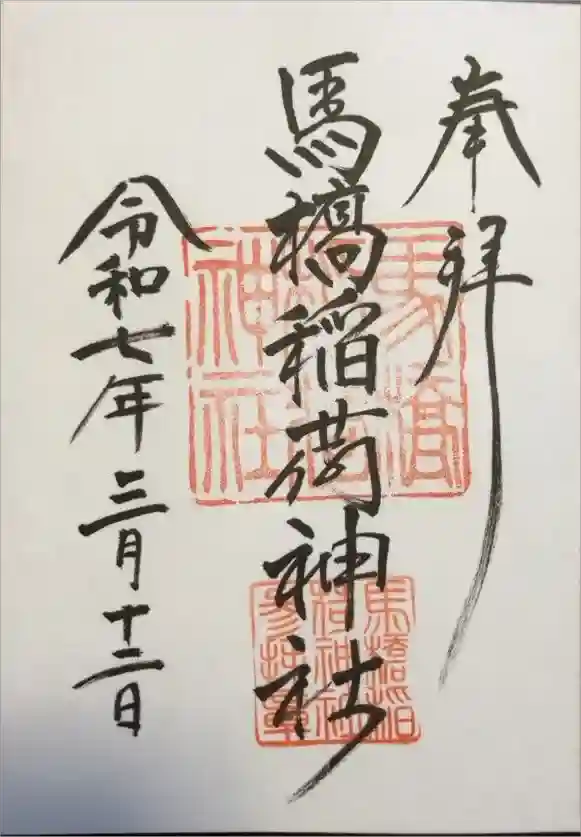 奉拝
馬橋稲荷神社
令和七年三月十二日
馬橋稲荷神社
馬橋稲荷神社参拝章